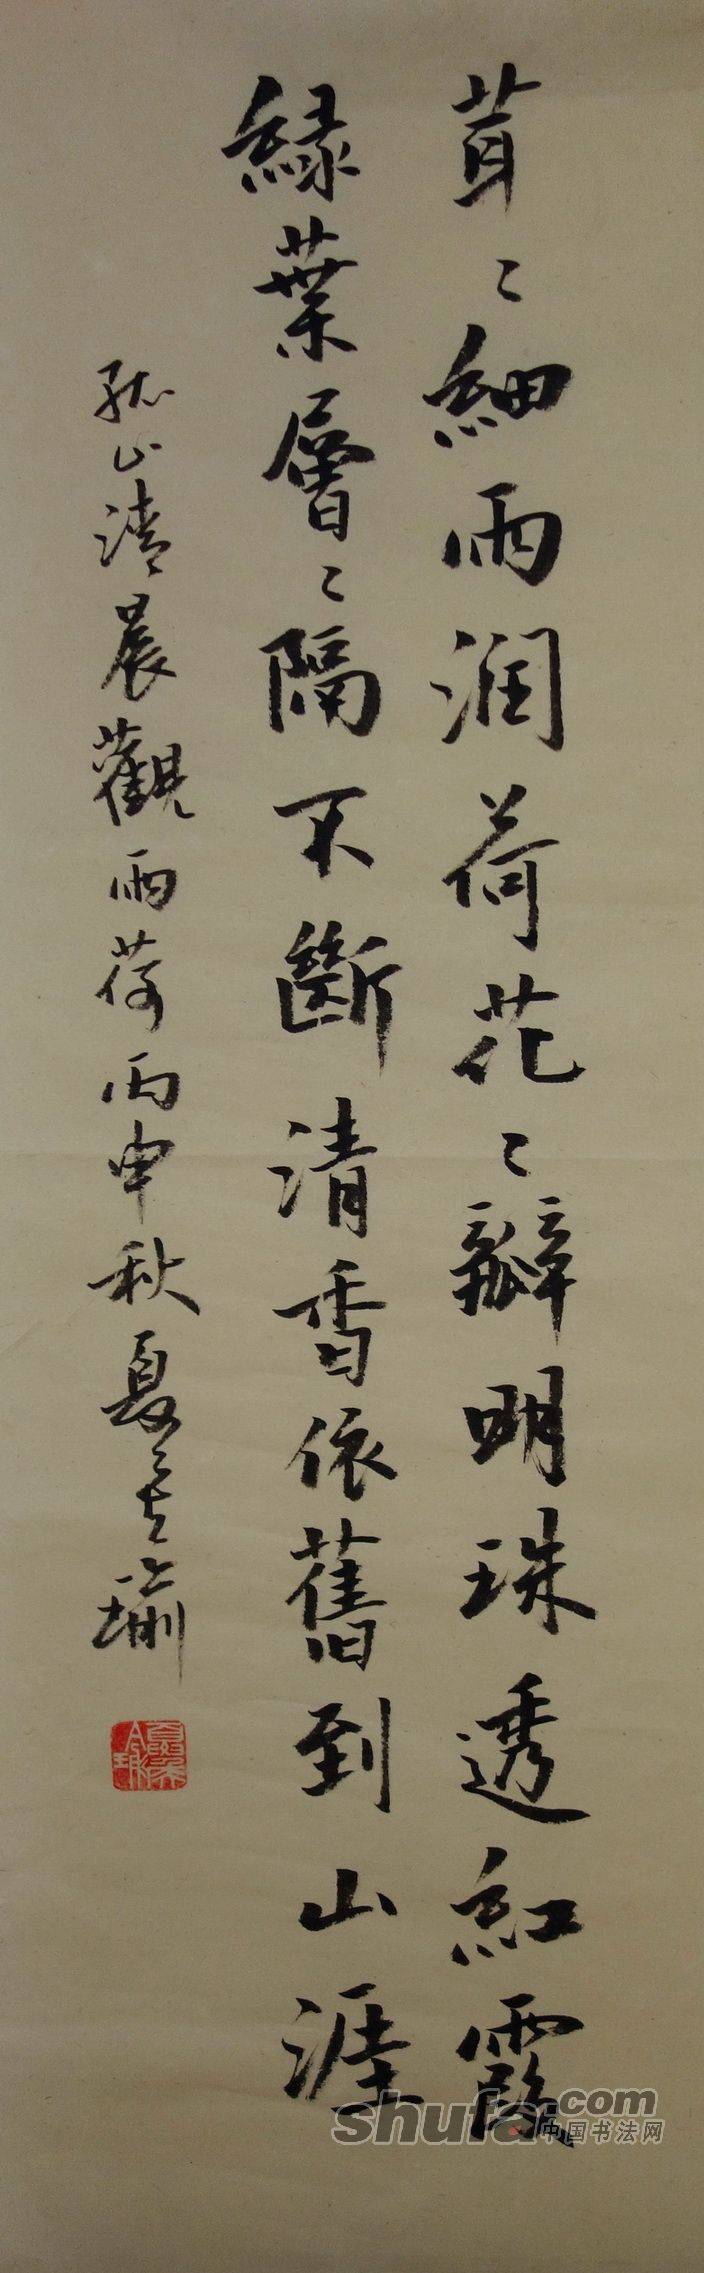 茸〻細雨润荷花〻瓣明珠透紅霞
緑葉層〻隔不斷清香依舊到山涯
孤山清晨觀雨荷丙申秋夏瑜
shufa.com
中国书法网